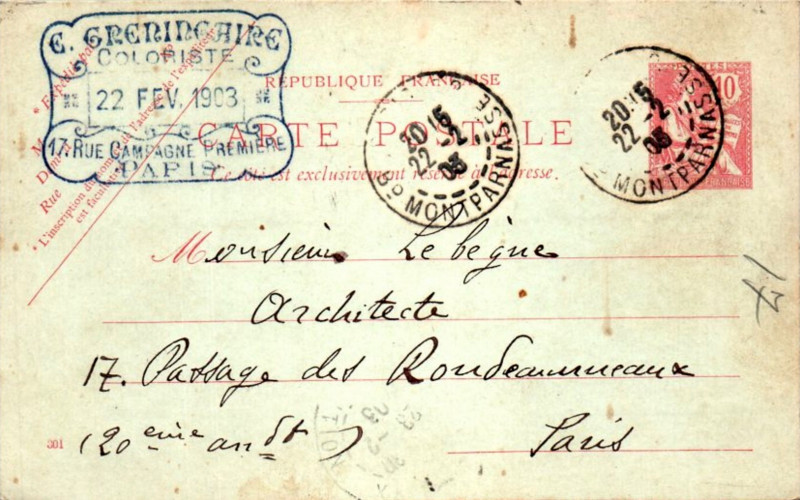 E. GRENINGAIRE
COLORISTE
22 FEV. 1903
17 RUE CAMPAGNE PREMIÈRE
PARIS
RÉPUBLIQUE FRANÇAISE
CARTE POSTALE
Ce côté est exclusivement réservé à l'adresse.
* Expéditeur
M
Dem
Rue
* L'inscription du nom et de l'adresse de l'expéditeur
est facultative
20 15
22 - 2
03
BD MONTPARNASSE
POSTES
10
20 15
22 - 2
03
BD MONTPARNASSE
Monsieur Lebègue
Architecte
17. Passage des Rondeaunneaux
(20 eme arrdt)
Paris
17
301